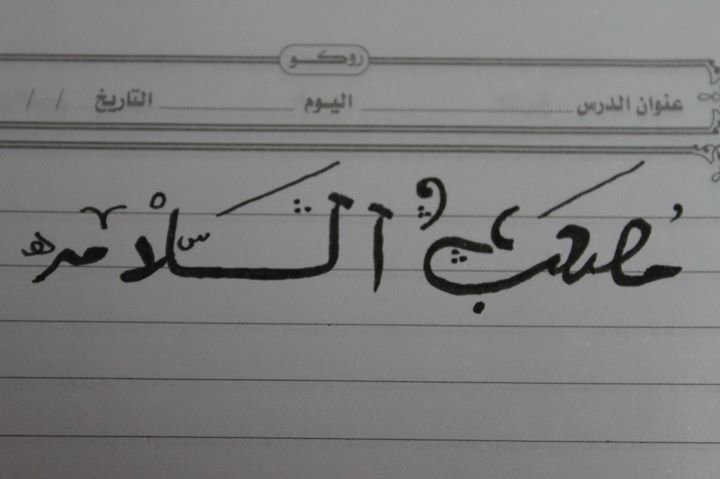 روكو
عنوان الدرس ........................ اليوم ........................ التاريخ / /
مصعب السلامه